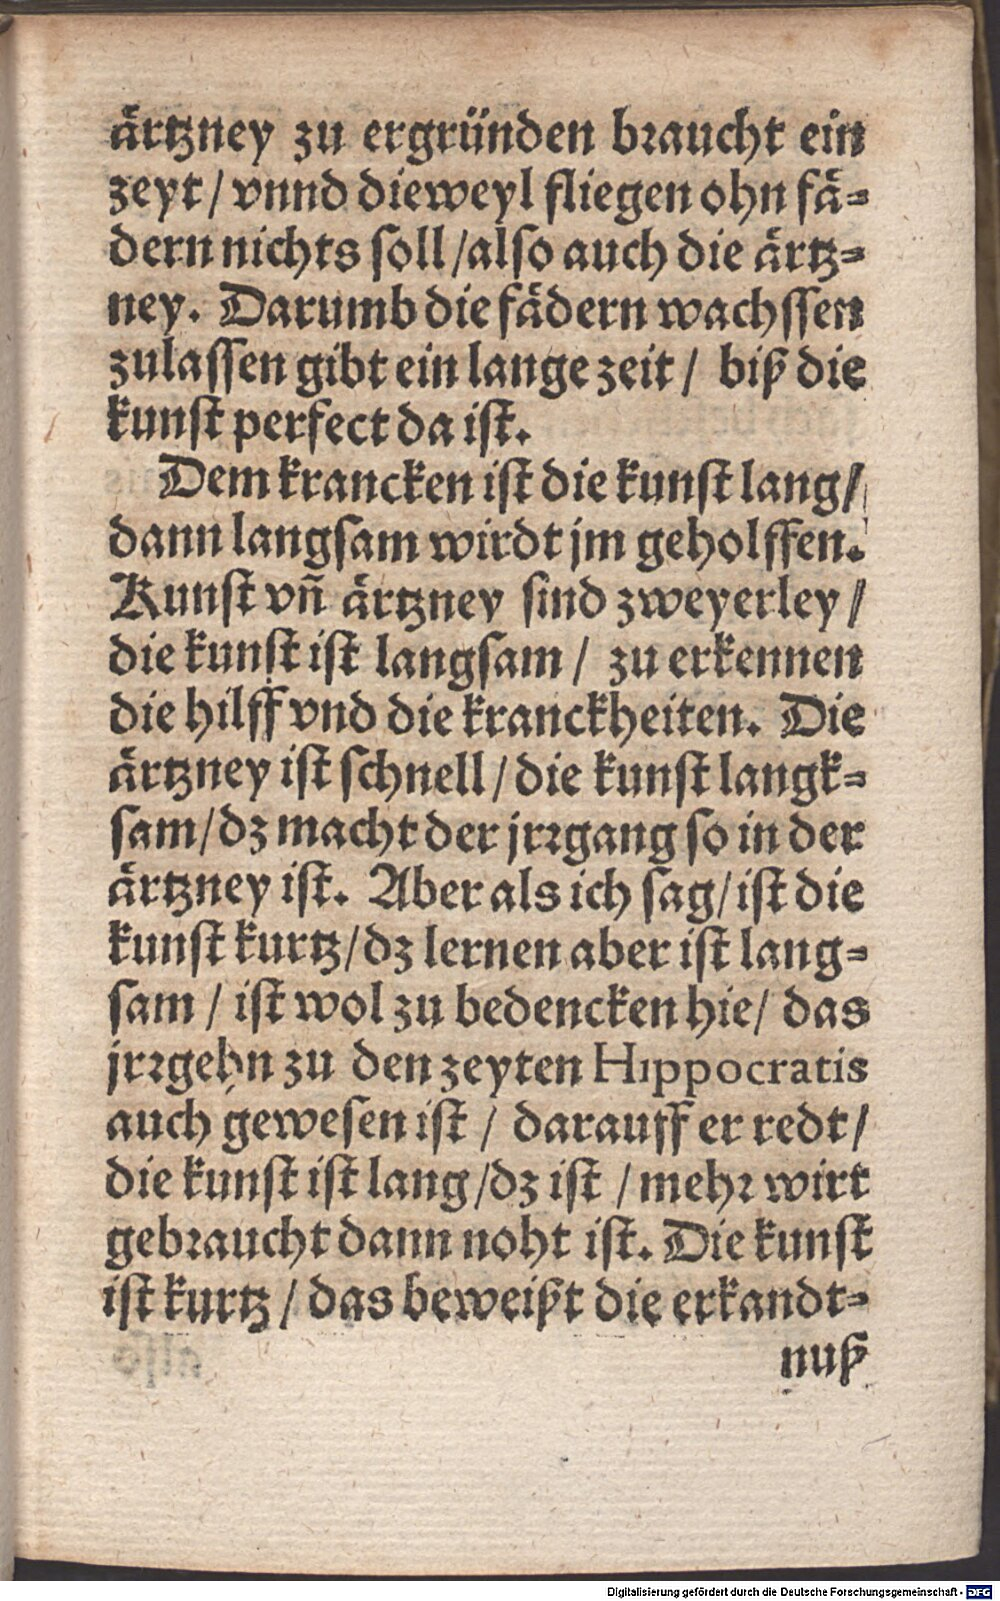 ärtzney zu ergründen braucht ein
zeyt / vnnd dieweyl fliegen ohn fä-
dern nichts soll / also auch die ärtz-
ney. Darumb die fädern wachssen
zulassen gibt ein lange zeit / biß die
kunst perfect da ist.
Dem krancken ist die kunst lang /
dann langsam wirdt jm geholffen.
Kunst vñ ärtzney sind zweyerley /
die kunst ist langsam / zu erkennen
die hilff vnd die kranckheiten. Die
ärtzney ist schnell / die kunst langk-
sam / dz macht der jrrgang so in der
ärtzney ist. Aber als ich sag / ist die
kunst kurtz / dz lernen aber ist lang-
sam / ist wol zu bedencken hie / das
jrrgehn zu den zeyten Hippocratis
auch gewesen ist / darauff er redt /
die kunst ist lang / dz ist / mehr wirt
gebraucht dann noht ist. Die kunst
ist kurtz / das beweißt die erkandt-
nuß
Digitalisierung gefördert durch die Deutsche Forschungsgemeinschaft - DFG